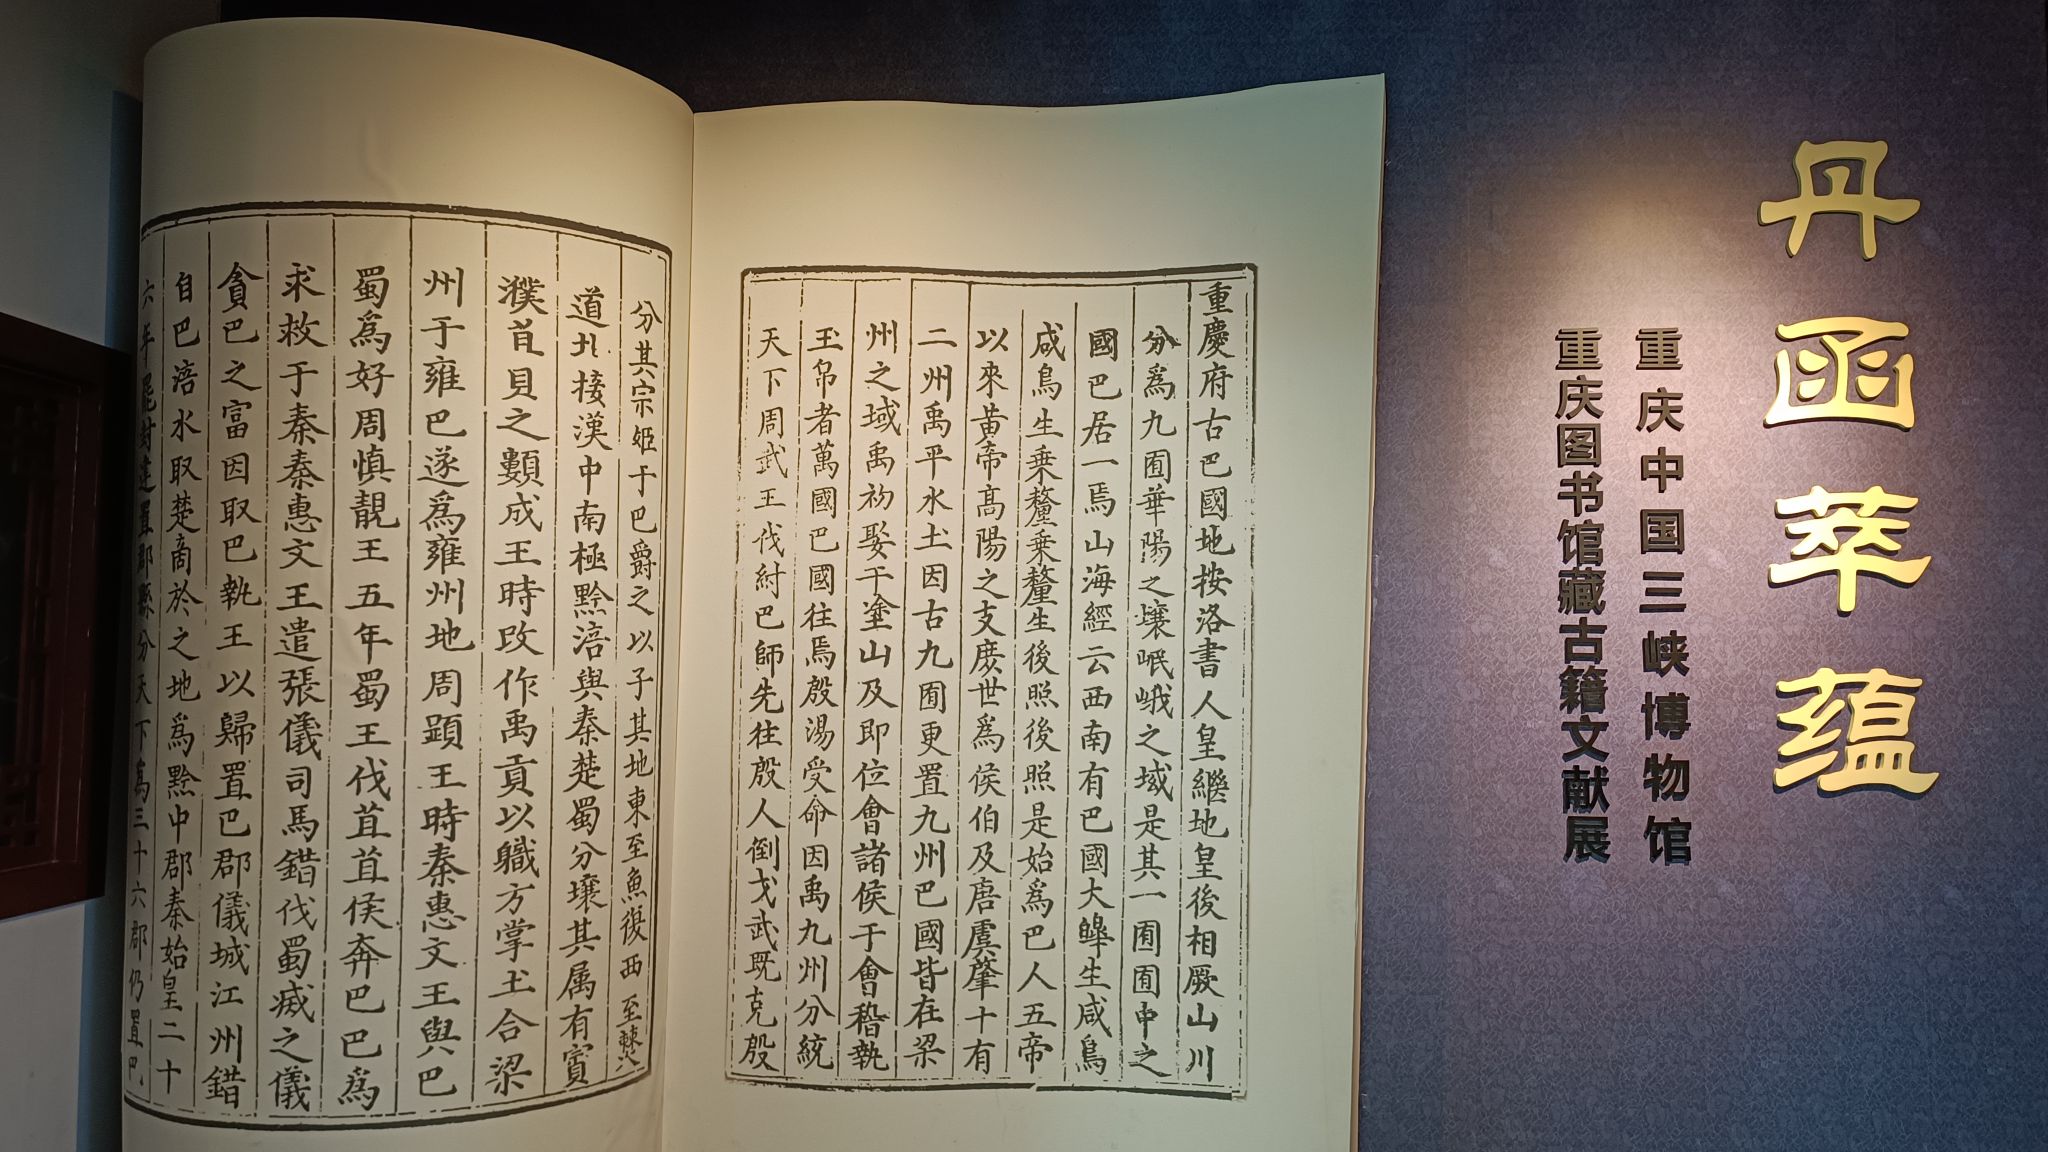 丹函萃蕴
重庆中国三峡博物馆
重庆图书馆藏古籍文献展
重慶府古巴國地按洛書人皇繼地皇後相厥山川
分爲九囿華陽之壤岷峨之域是其一囿囿中之
國巴居一焉山海經云西南有巴國大皞生咸鳥
咸鳥生乗釐乗釐生後照後照是始爲巴人五帝
以來黄帝髙陽之支庻世爲侯伯及唐虞肇十有
二州禹平水土因古九囿更置九州巴國皆在梁
州之域禹初娶于塗山及即位會諸侯于會稽執
玉帛者萬國巴國往焉殷湯受命因禹九州分統
天下周武王伐紂巴師先往殷人倒戈武既克殷
分其宗姬于巴爵之以子其地東至魚復西至僰
道北接漢中南極黔涪與秦楚蜀分壤其属有賨
濮苴貝之數成王時改作禹貢以職方掌土合梁
州于雍巴遂爲雍州地周顯王時秦惠文王與巴
蜀爲好周慎靚王五年蜀王伐苴苴侯奔巴巴爲
求救于秦秦惠文王遣張儀司馬錯伐蜀㓕之儀
貪巴之富因取巴執王以歸置巴郡儀城江州錯
自巴涪水取楚商於之地爲黔中郡秦始皇二十
六年罷封建置郡縣分天下爲三十六郡仍置巴